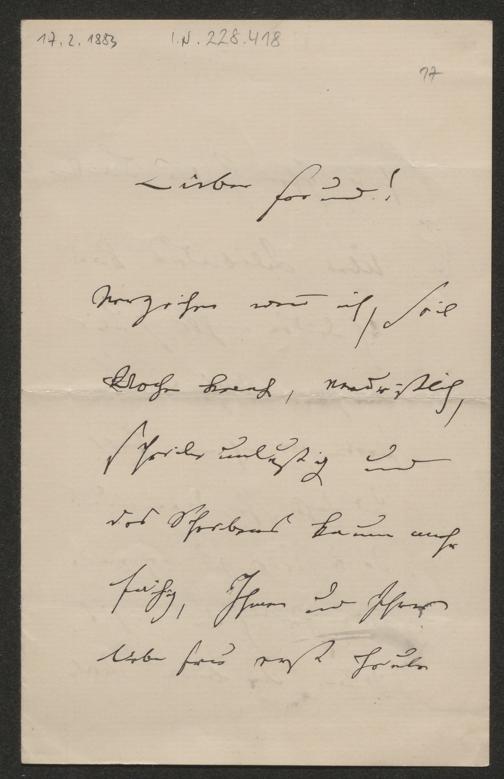 17.2.1883
I.N. 228.418
77
Lieber Freund!
Verzeihen wenn ich, seit
Woche krank,
schreibunlustig und
des Schreibens kaum mehr
fähig, Ihnen und Ihrer
lieben Frau erst heute